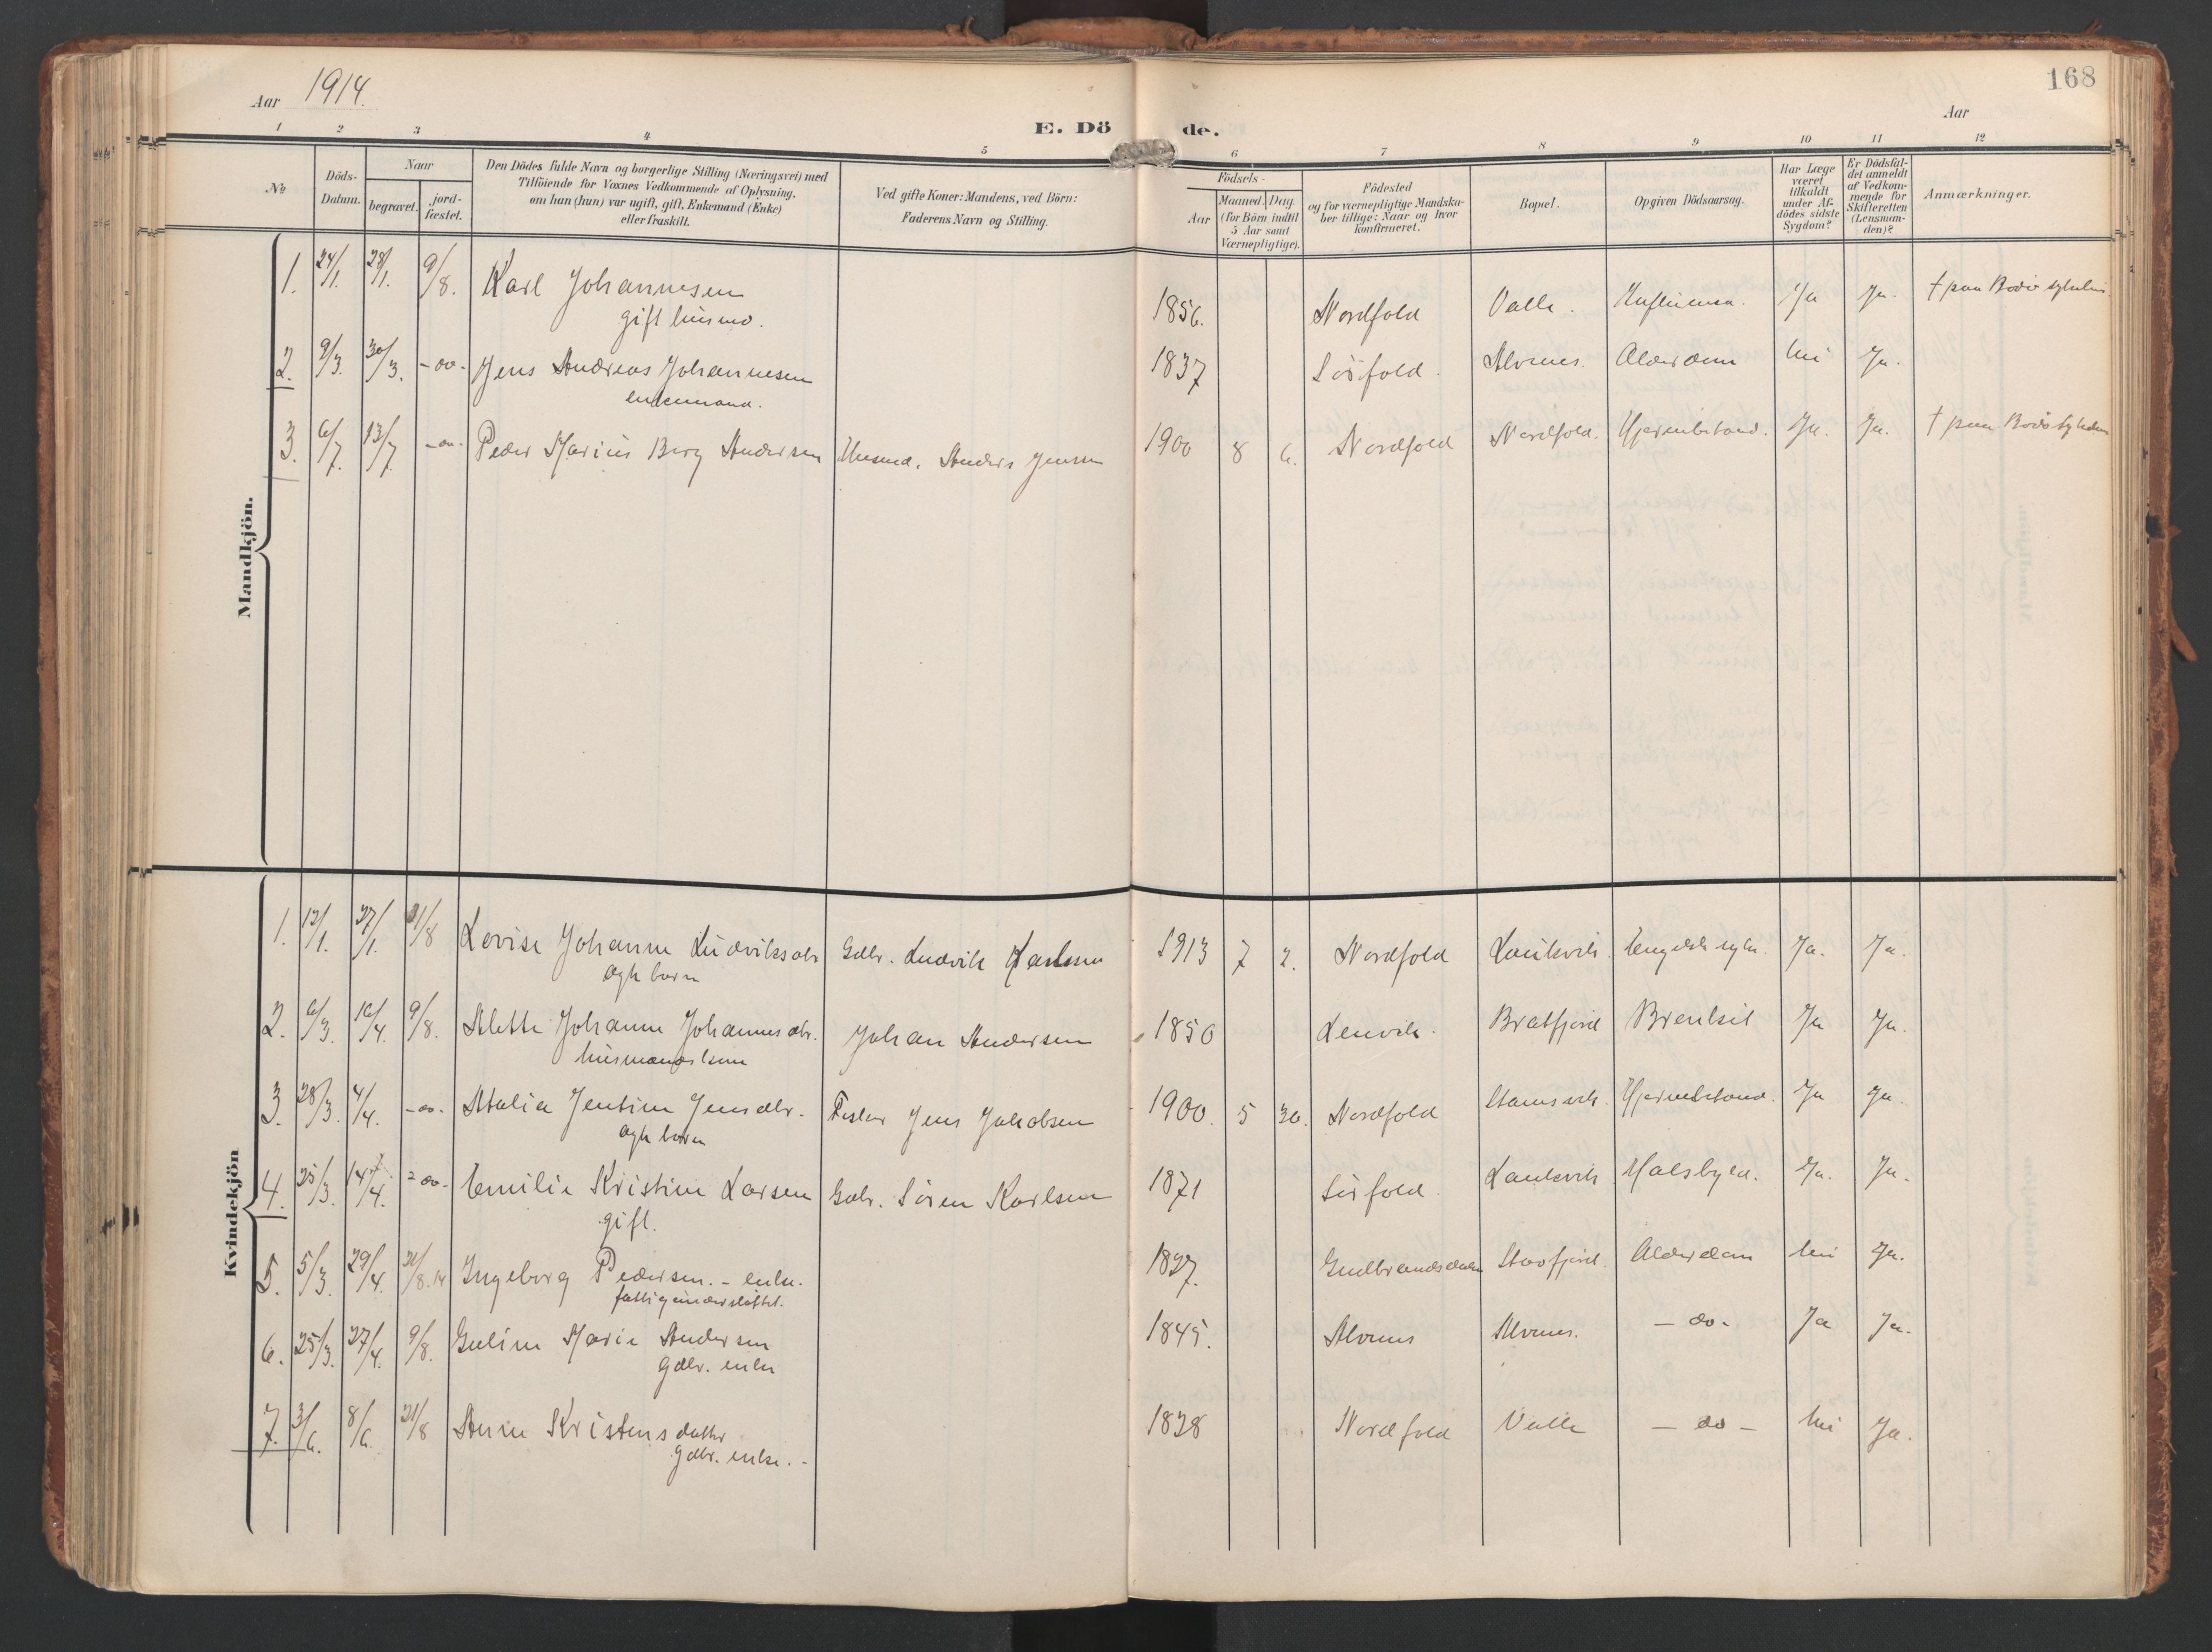 168
Aar 1914.
Aar
E. Döde.
1 2 3 4 5 6 7 8 9 10 11 12
No
Döds-
Datum.
Naar
begravet.
jord-
fæstet.
Den Dödes fulde Navn og borgerlige Stilling (Næringsvei) med
Tilföiende for Voxnes Vedkommende af Oplysning,
om han (hun) var ugift, gift, Enkemand (Enke)
eller fraskilt.
Ved gifte Koner: Mandens, ved Börn:
Faderens Navn og Stilling.
Födsels-
Aar
Maaned. Dag.
(for Börn indtil
5 Aar samt
Værnepligtige).
Födested
og for værnepligtige Mandska-
ber tillige: Naar og hvor
konfirmeret.
Bopæl.
Opgiven Dödsaarsag.
Har Læge
været
tilkaldt
under Af-
dödes sidste
Sygdom?
Er Dödsfal-
det anmeldt
af Vedkom-
mende for
Skifteretten
(Lensman-
den)?
Anmærkninger.
Mandkjön.
1. 24/1. 28/1. 9/8. Karl Johannesen 1856. Nordfold Valle. Influensa. Ja Ja. † paa Bodö
gift husmd.
2. 9/3. 30/3. -do- Jens Andreas Johannesen 1837 Sörfold. Alvenes. Alderdom Nei Ja.
enkemand.
3. 6/7. 13/7. -do- Peder Marius Berg Andersen Husmd. Anders Jensen 1900 8 6. Nordfold Nordfold. Hjernebetænd. Ja. Ja. † paa Bodö
Kvindekjön
1. 12/1. 27/1. 21/8 Lovise Johanne Ludviksdtr Gdbr. Ludvik Karlsen 1913 7 2. Nordfold Laukvik. Engelsk syke. Ja. Ja.
ægte barn
2. 6/3. 16/4. 9/8. Alette Johanne Johannesdtr. Johan Andersen 1850 Lenvik. Bratfjord Ja Ja.
husmandskone
3. 28/3. 4/4. -do- Atalia Jentine Jensdtr. Fisker Jens Jakobsen 1900. 5 30. Nordfold Stamsvik. Hjernebetænd. Ja Ja.
ægte barn
4. 25/3. 14/4. -do- Emilie Kristine Larsen Gdbr. Sören Karlsen 1871 Sörfold Laukvik Halsbyld. Ja. Ja.
gift.
5. 5/3. 29/4. 21/8.14 Ingeborg Pedersen. - enke. 1827. Gudbrandsdalen Stavfjord. Alderdom Nei Ja.
fattigunderstöttet.
6. 25/3. 27/4. 9/8. Guline Marie Andersen 1845. Alvenes Alvenes. - do - Ja Ja.
gdbr. enke
7. 3/6. 8/6. 21/8 Anne Kristensdatter 1828 Nordfold Valle - do - Nei Ja.
gdbr. enke. -